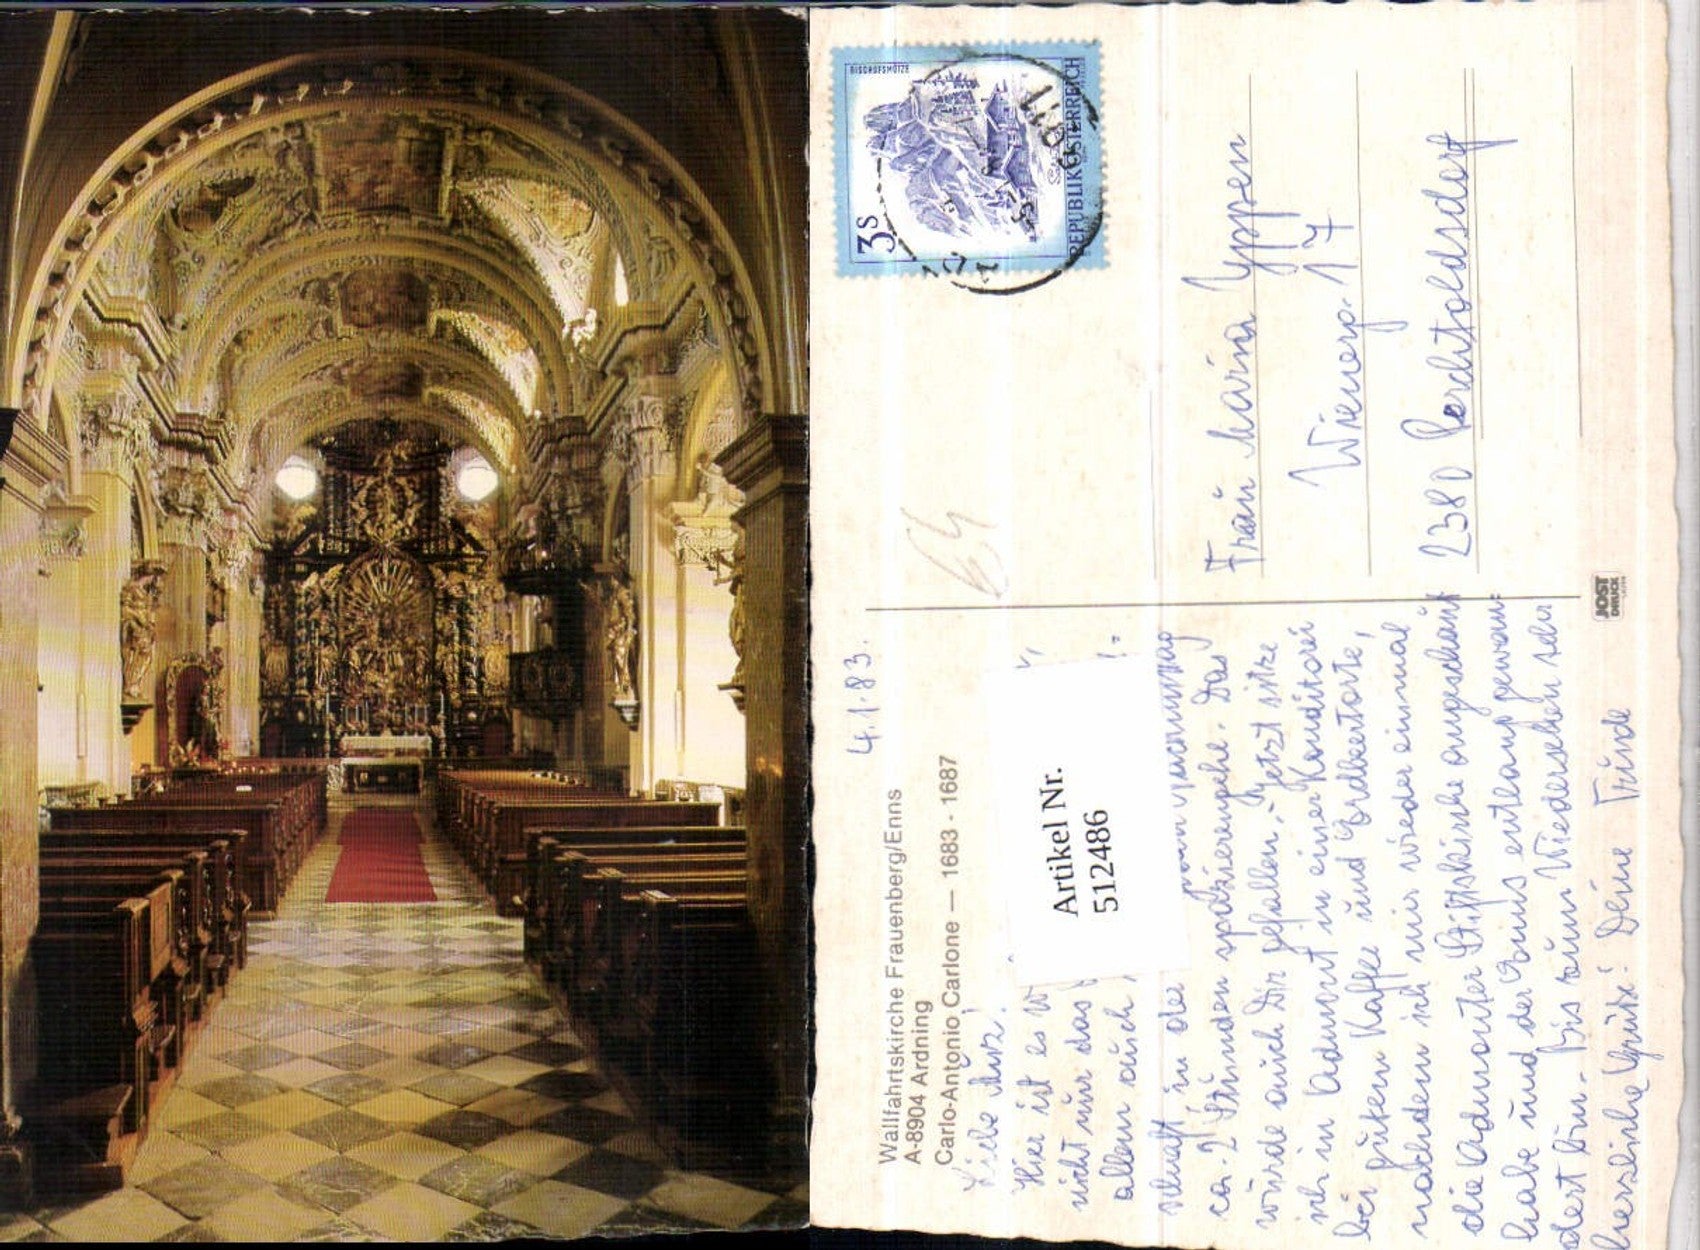 BISCHOFSMÜTZE
3 S
REPUBLIK ÖSTERREICH
4.1.83.
Wallfahrtskirche Frauenberg/Enns
A-8904 Ardning
Carlo-Antonio Carlone — 1683 - 1687
Artikel Nr.
512486
Liebe
Hier ist es
nicht nur das
allem auch
in der
ca. 2 Stunden spazierengehe. Das
würde auch Dir gefallen. - Jetzt sitze
ich in Admont in einer Konditorei
bei gutem Kaffee und Erdbeertorte,
nachdem ich mir wieder einmal
die Admonter Stiftskirche angeschaut
habe und der Enns entlang gewan-
dert bin. - Bis zum Wiedersehen sehr
herzliche Grüße! Deine Trude
Frau Maria Yppen
Wienerg. 17
2380 Perchtoldsdorf
JOST
DRUCK